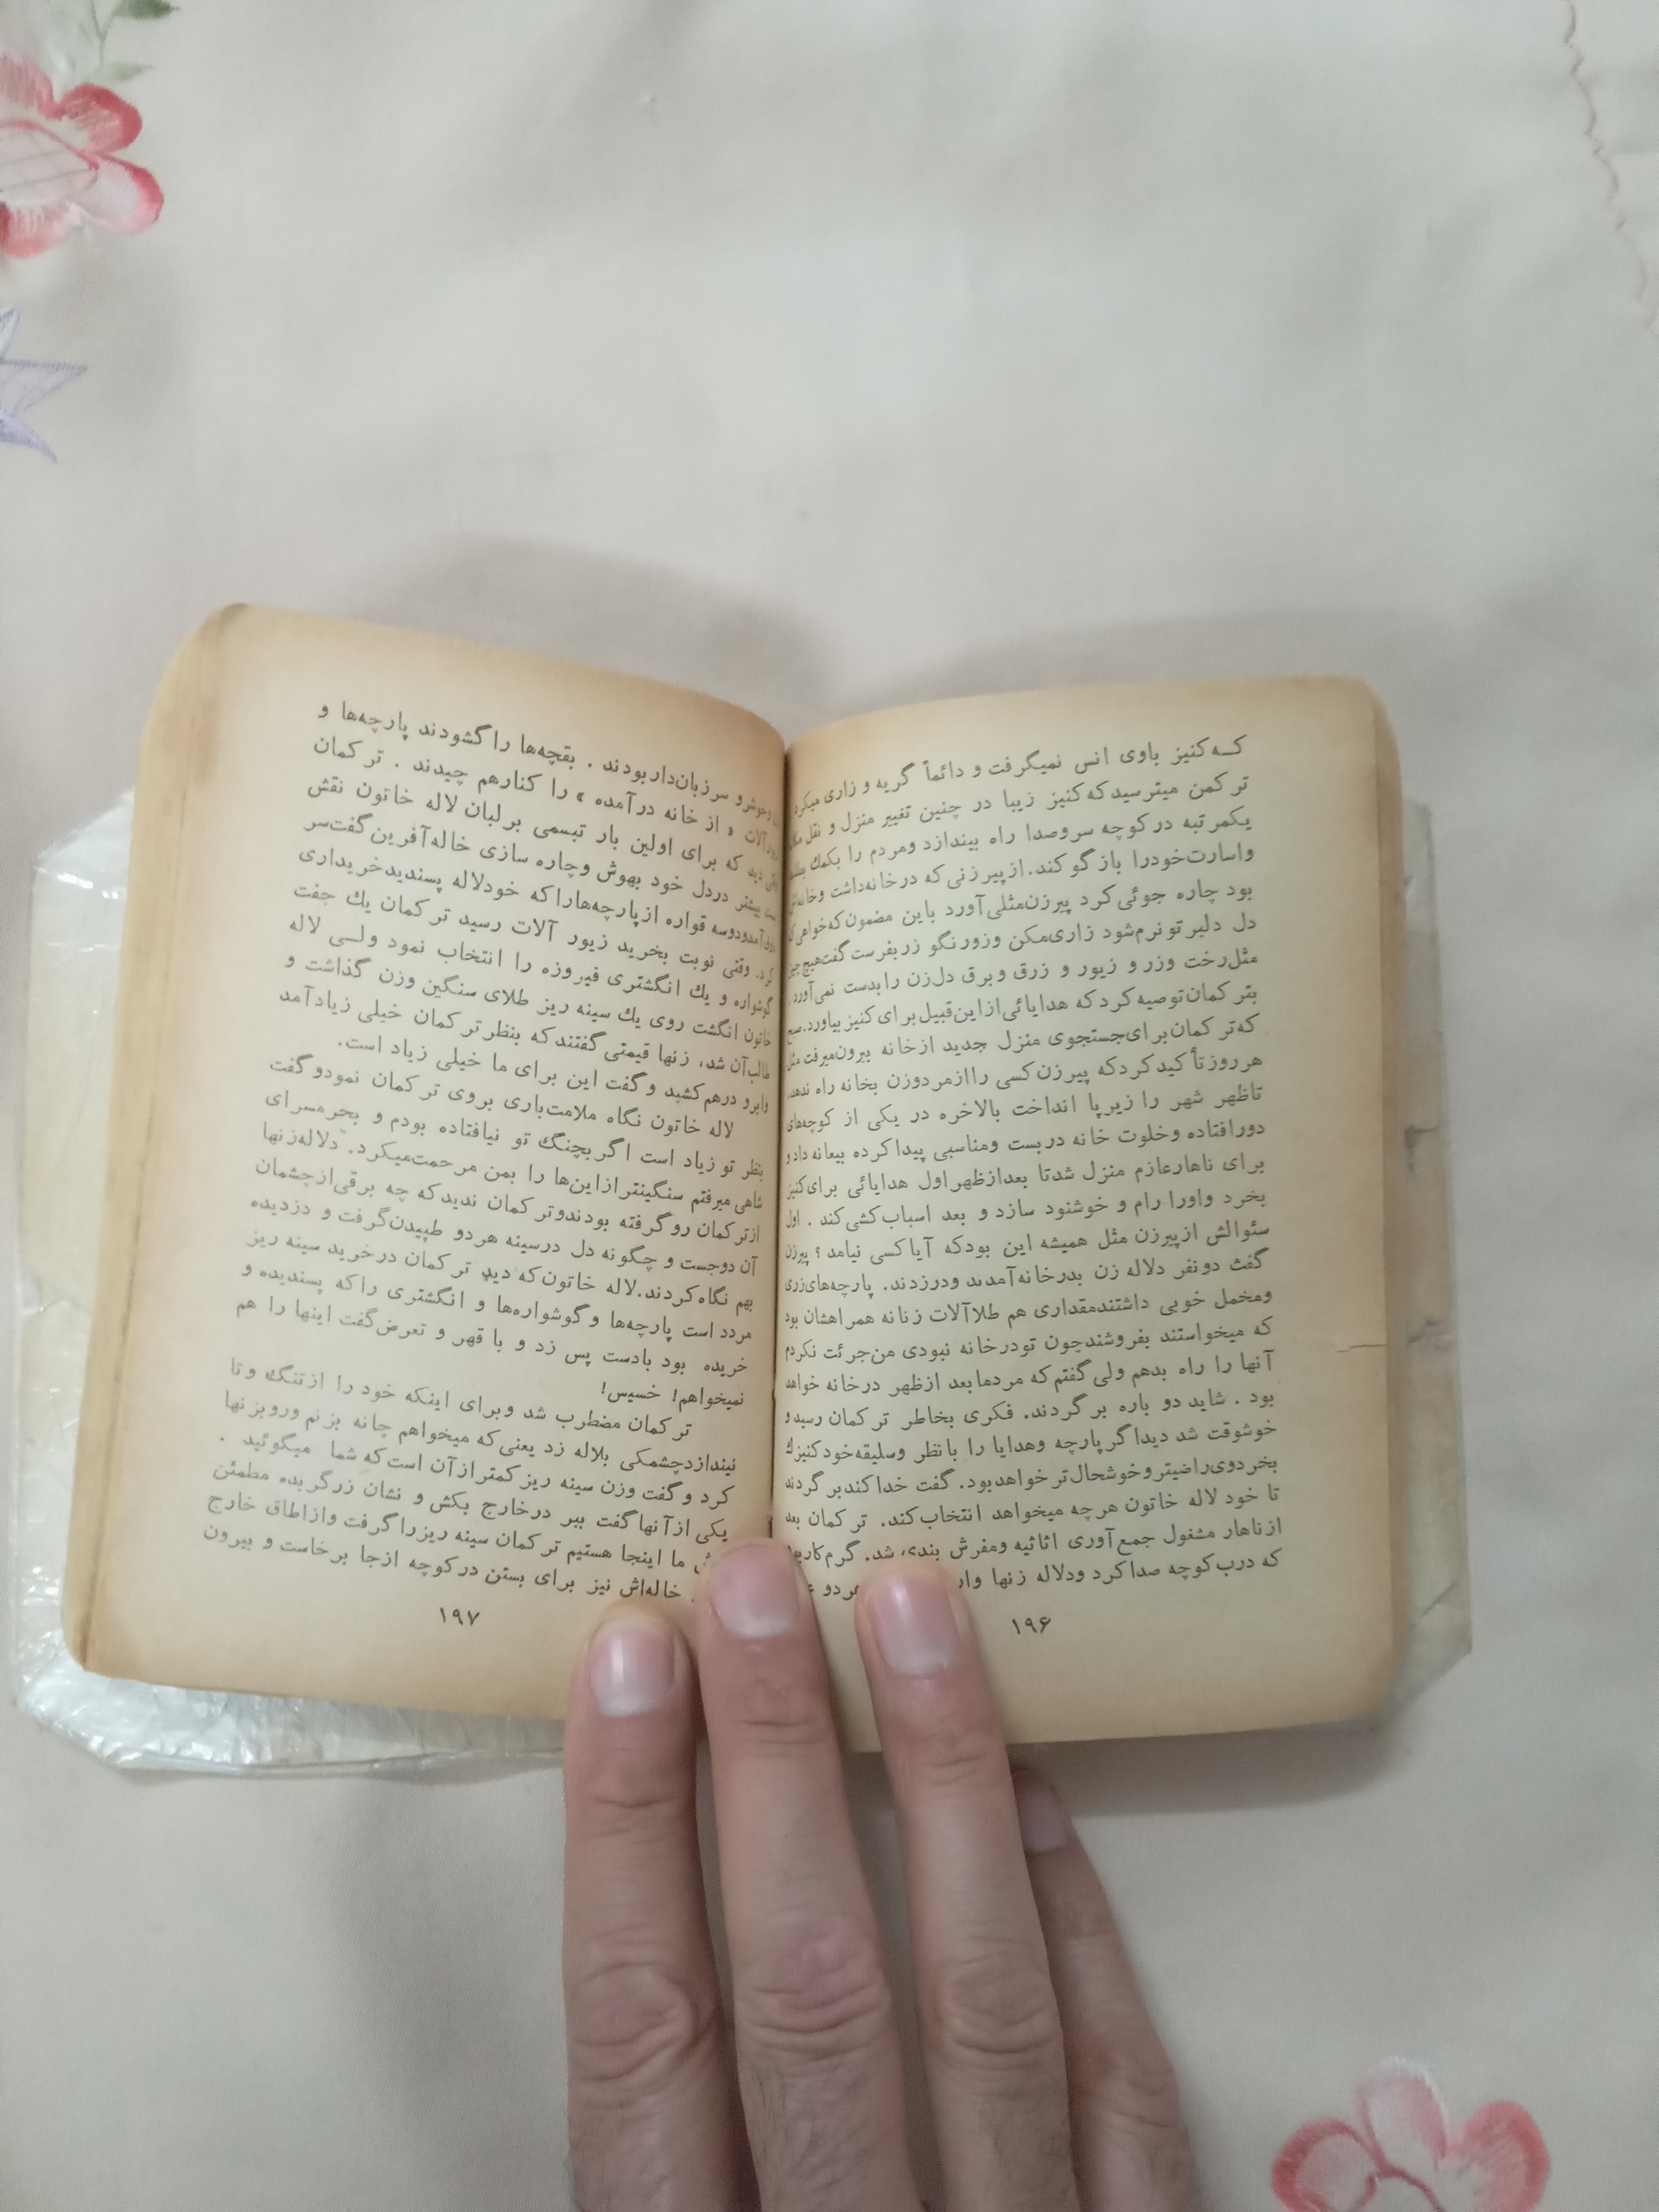 کـه کنیز باوی انس نمیگرفت و دائماً گریه و زاری میکرد
ترکمن میترسید که کنیز زیبا در چنین تغییر منزل و نقل
یکمرتبه در کوچه سروصدا راه بیندازد ومردم را بکمك
واسارت خودرا بازگو کند. از پیرزنی که درخانه داشت
بود چاره جوئی کرد پیرزن مثلی آورد باین مضمون که خواهی
دل دلبر تو نرم شود زاری مکن وزور نگو زر بفرست گفت هیچ چیز
مثل رخت وزر و زیور و زرق و برق دل زن را بدست نمی آورد.
بترکمان توصیه کرد که هدایائی از این قبیل برای کنیز بیاورد. صبح
که ترکمان برای جستجوی منزل جدید ازخانه بیرون میرفت مثل
هر روز تأکید کرد که پیرزن کسی را ازمرد وزن بخانه راه ندهد.
تاظهر شهر را زیرپا انداخت بالاخره در یکی از کوچه‌های
دورافتاده وخلوت خانه دربست ومناسبی پیدا کرده بیعانه داد و
برای ناهار عازم منزل شد تا بعدازظهر اول هدایائی برای کنیز
بخرد واورا رام و خوشنود سازد و بعد اسباب کشی کند . اول
سئوالش از پیرزن مثل همیشه این بود که آیا کسی نیامد ؟ پیرزن
گفت دونفر دلاله زن بدرخانه آمدند ودرزدند. پارچه‌های زری
ومخمل خوبی داشتند مقداری هم طلاآلات زنانه همراهشان بود
که میخواستند بفروشند چون تو درخانه نبودی من جرئت نکردم
آنها را راه بدهم ولی گفتم که مردما بعد ازظهر درخانه خواهد
بود . شاید دو باره برگردند. فکری بخاطر ترکمان رسید و
خوشوقت شد دید اگر پارچه وهدایا را بانظر وسلیقه خود کنیزك
بخرد وی راضیتر و خوشحال تر خواهد بود. گفت خدا کند برگردند
تا خود لاله خاتون هرچه میخواهد انتخاب کند. ترکمان بعد
از ناهار مشغول جمع آوری اثاثیه ومفرش بندی شد. گرم کار بود
که درب کوچه صدا کرد ودلاله زنها هردو
۱۹۶
وخوش و سرزبان دار بودند . بقچه‌ها را گشودند پارچه‌ها و
آلات « از خانه درآمده » را کنارهم چیدند . ترکمان
دید که برای اولین بار تبسمی برلبان لاله خاتون نقش
بیشتر دردل خود بهوش وچاره سازی خاله آفرین گفت سر
آمد ودوسه قواره از پارچه‌هارا که خود لاله پسندید خریداری
کرد. وقتی نوبت بخرید زیور آلات رسید ترکمان یك جفت
گوشواره و یك انگشتری فیروزه را انتخاب نمود ولـی لاله
خاتون انگشت روی یك سینه ریز طلای سنگین وزن گذاشت و
طالب آن شد، زنها قیمتی گفتند که بنظر ترکمان خیلی زیاد آمد
وابرو درهم کشید و گفت این برای ما خیلی زیاد است.
لاله خاتون نگاه ملامت باری بروی ترکمان نمود و گفت
بنظر تو زیاد است اگر بچنگ تو نیافتاده بودم و بحرمسرای
شاهی میرفتم سنگینتر از این‌ها را بمن مرحمت میکرد. دلاله زنها
از ترکمان رو گرفته بودند و ترکمان ندید که چه برقی از چشمان
آن دوجست و چگونه دل درسینه هردو طپیدن گرفت و دزدیده
بهم نگاه کردند. لاله خاتون که دید ترکمان درخرید سینه ریز
مردد است پارچه‌ها و گوشواره‌ها و انگشتری را که پسندیده و
خریده بود بادست پس زد و با قهر و تعرض گفت اینها را هم
نمیخواهم! خسیس!
ترکمان مضطرب شد وبرای اینکه خود را از تنگ و تا
نیندازد چشمکی بلاله زد یعنی که میخواهم چانه بزنم وروبزنها
کرد و گفت وزن سینه ریز کمتر از آن است که شما میگوئید .
یکی از آنها گفت ببر درخارج بکش و نشان زرگر بده مطمئن
ما اینجا هستیم ترکمان سینه ریز را گرفت واز اطاق خارج
خاله‌اش نیز برای بستن درکوچه ازجا برخاست و بیرون
۱۹۷